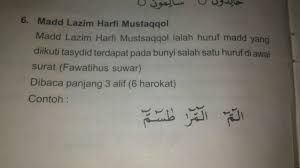 خالدون ○ سائمون ○
6. Madd Lazim Harfi Mustaqqol
Madd Lazim Harfi Mustsaqqol ialah huruf madd yang
diikuti tasydid terdapat pada bunyi salah satu huruf di awal
surat (Fawatihus suwar)
Dibaca panjang 3 alif (6 harokat)
Contoh :
الٓمّٓ الٓمّٓرٰ طٰسٓمّٓ